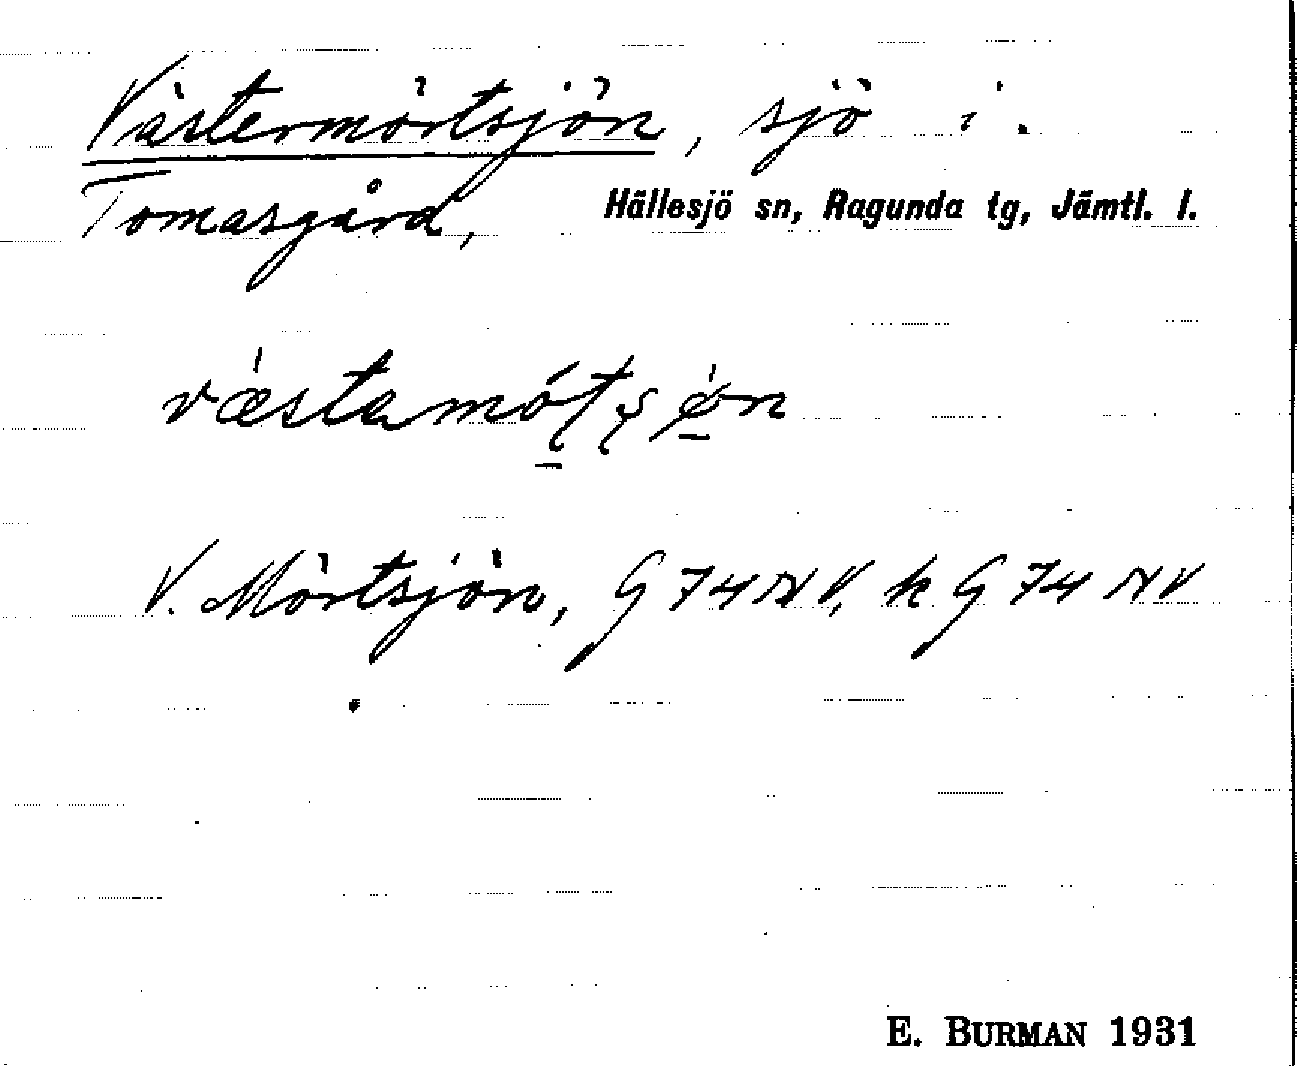 Västermörtsjön, sjö i
Tomasgård, Hällesjö sn, Ragunda tg, Jämtl. l.
V. Mörtsjön, G 74 NV, k G 74 NV
E. BURMAN 1931